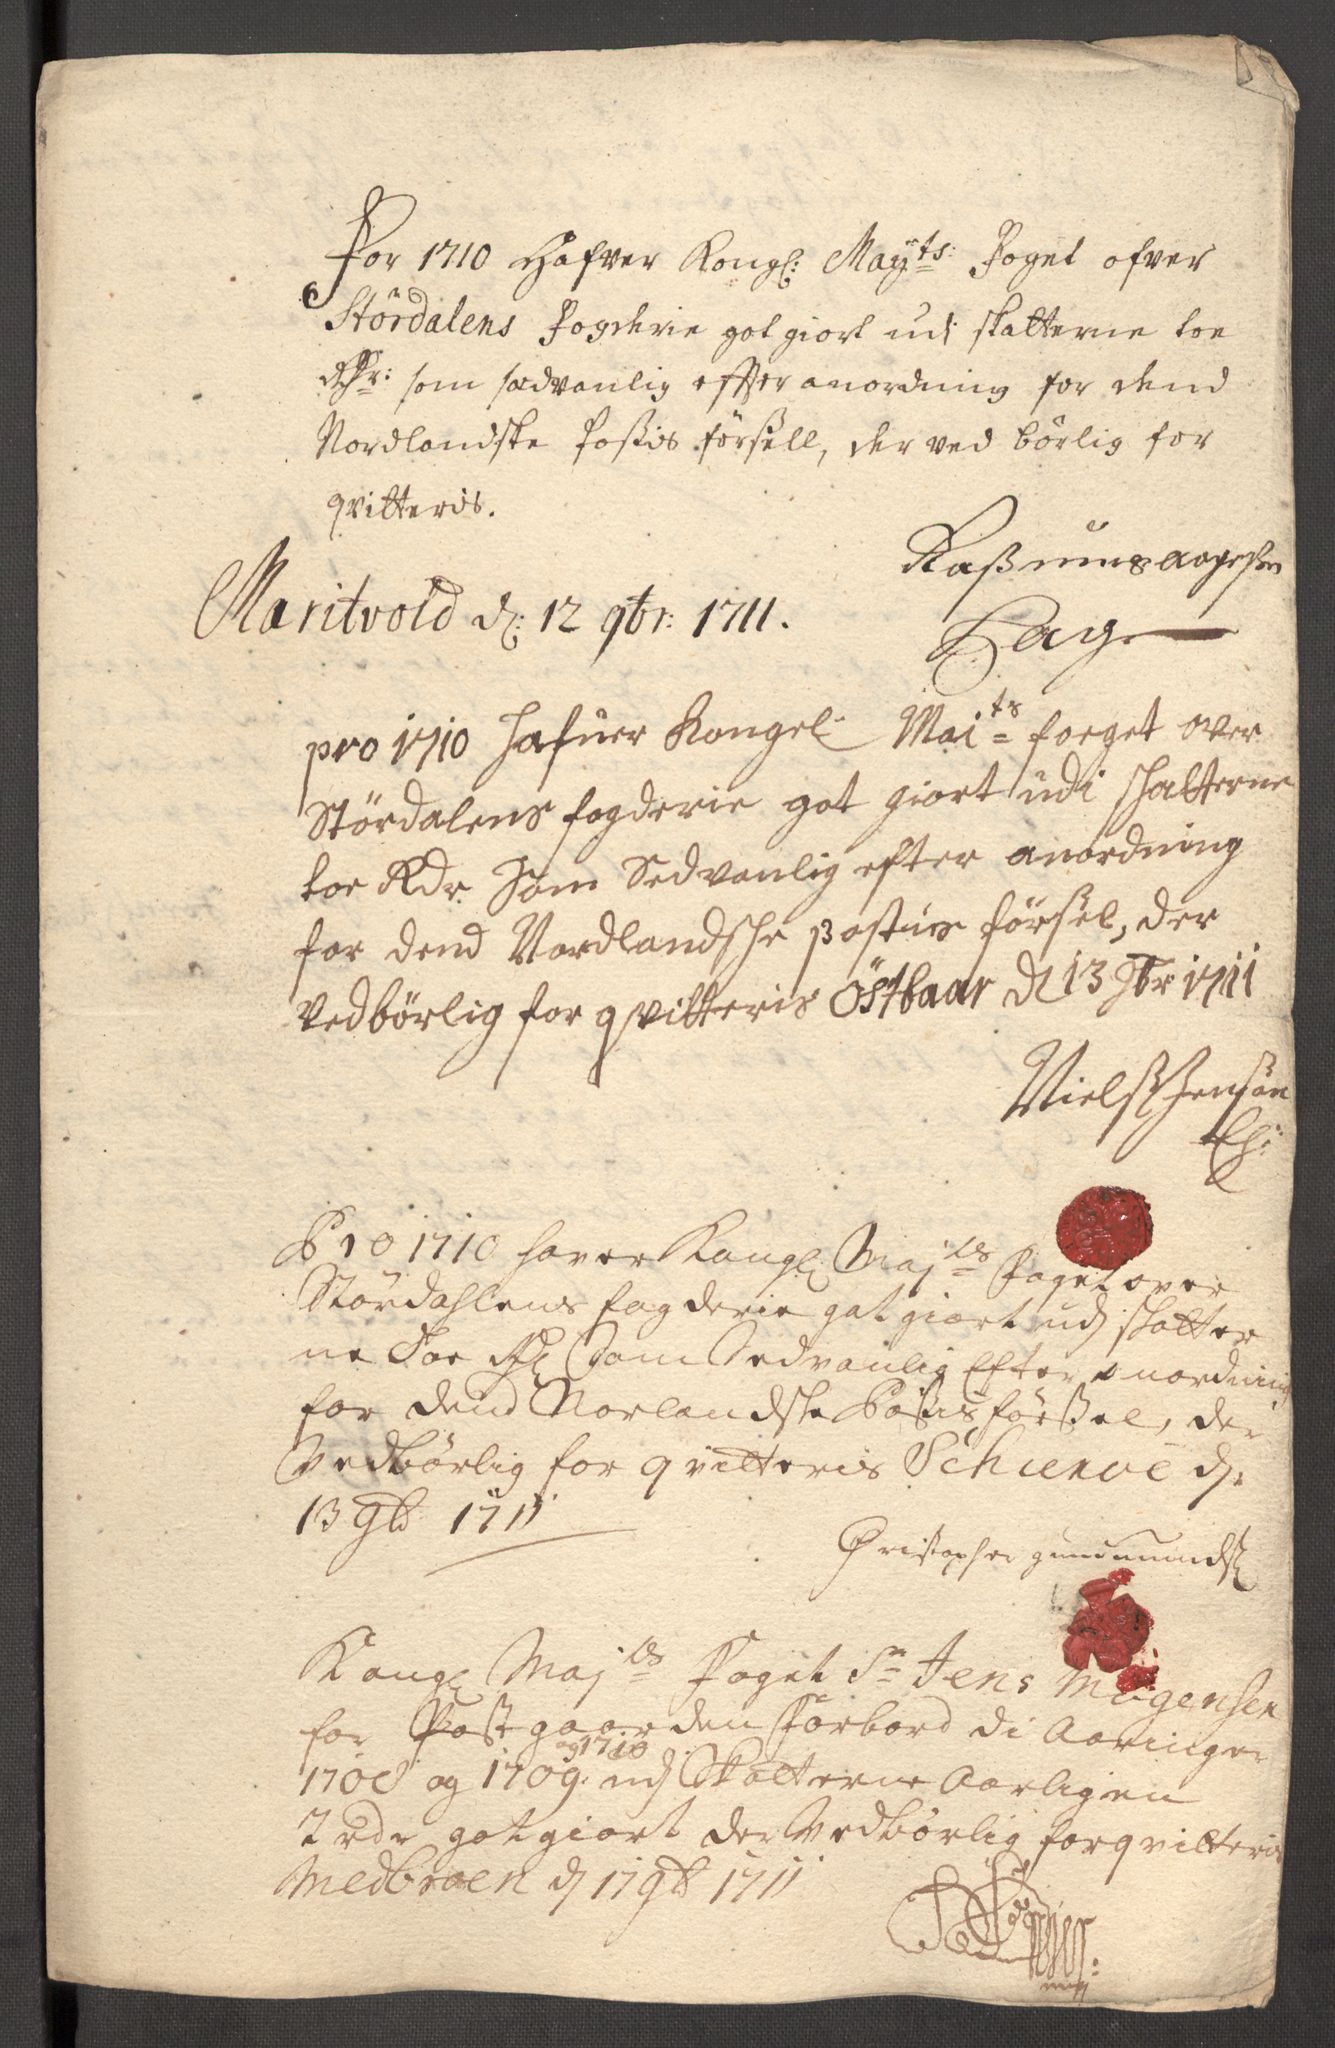 For 1710 Hafver Kongl: Mayts: Foget ofver
Stördalens Fogderie got giort udi skatterne toe
Rdr: som sædvanlig effter anordning for dend
Nordlandske Postis försell, der ved börlig for
qvitteris.
Rasmus aagesen
Hag
Maritvold d: 12 9br: 1711.
pro 1710 hafuer Kongel Maits foeget over
Stördalens fogderie got giort udi schatterne
toe Rdr. Som Sedvanlig efter anordning
for dend Nordlandsche postus førsel, der
vedbørlig for qvitteris Östbaar d 13 9br 1711
Niels Jensøn
Pro 1710 haver Kongl Majts Foget over
Stördahlens fogderie got giort udj skatter
ne Toe Rd Som Sedvanlig Efter anordning
for dend Norlandske Postis førsel, der
vedbørlig for qvitteris Schierve d:
13 9b 1711
Christopher gudmunds
Kongl Majts Foget Sr Jens Mogensen
for Postgaarden Forbord di Aaringer
og 1710
1708 og 1709. udj Skatterne Aarligen
2 rdr gotgiort der Vedbørlig for qvitteris
Medbroen d 17 9b 1711